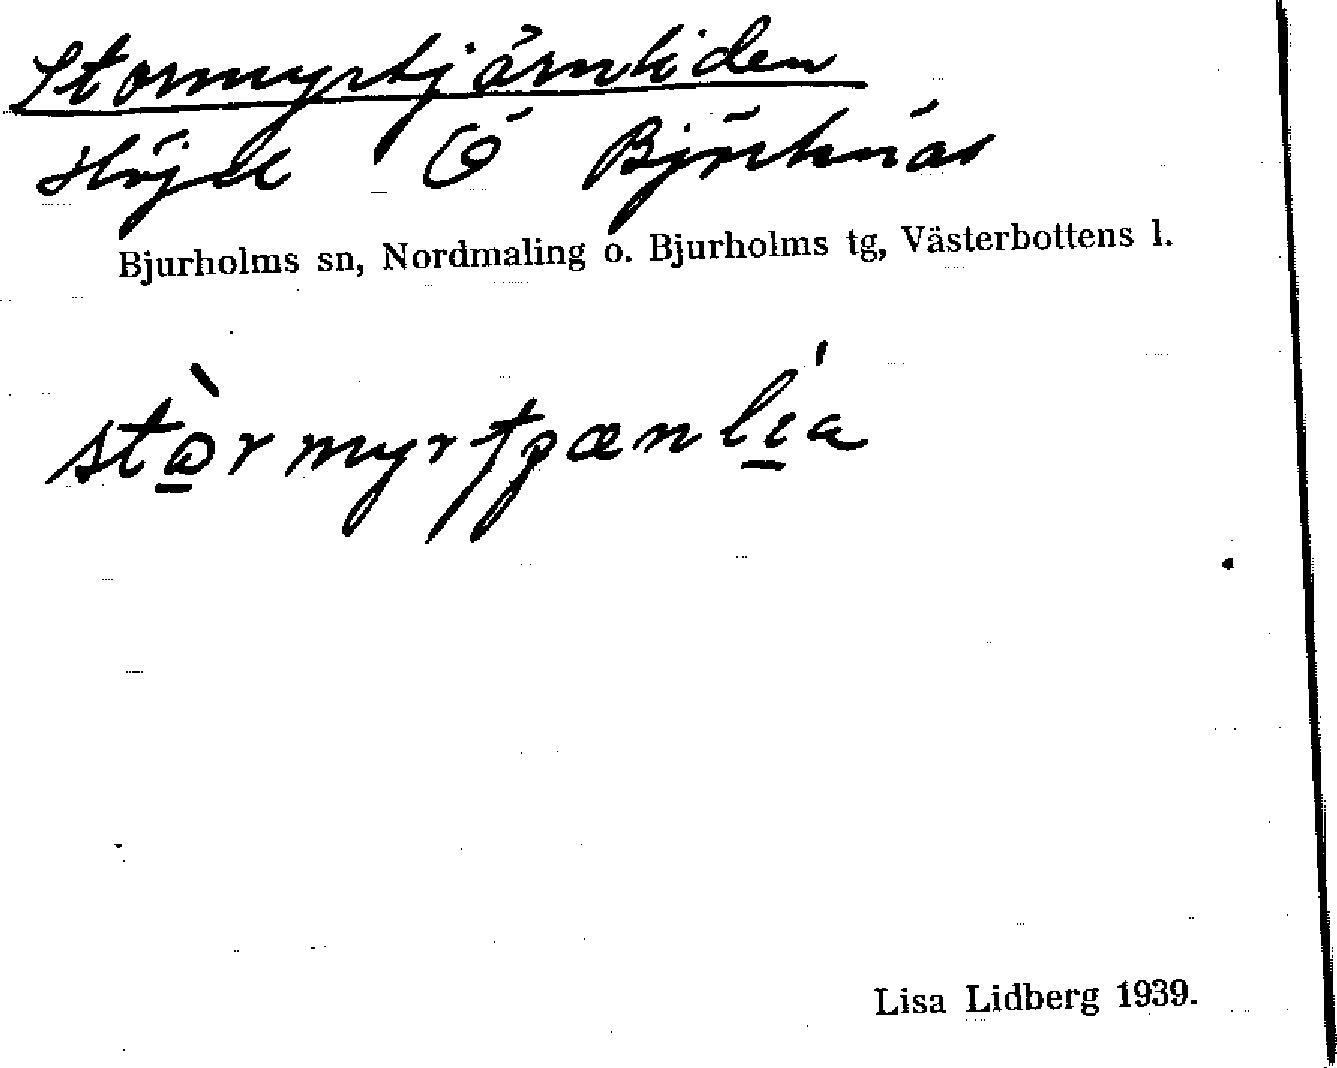 Stormyrtjärnliden
Höjd Ö Björknäs
Bjurholms sn, Nordmaling o. Bjurholms tg, Västerbottens l.
Lisa Lidberg 1939.